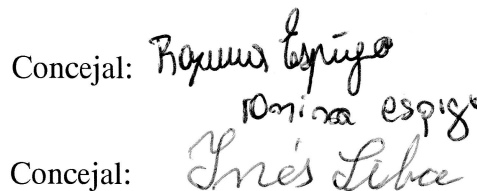 Concejal: Romina Espiga
Romina espig
Concejal: Inés Liba